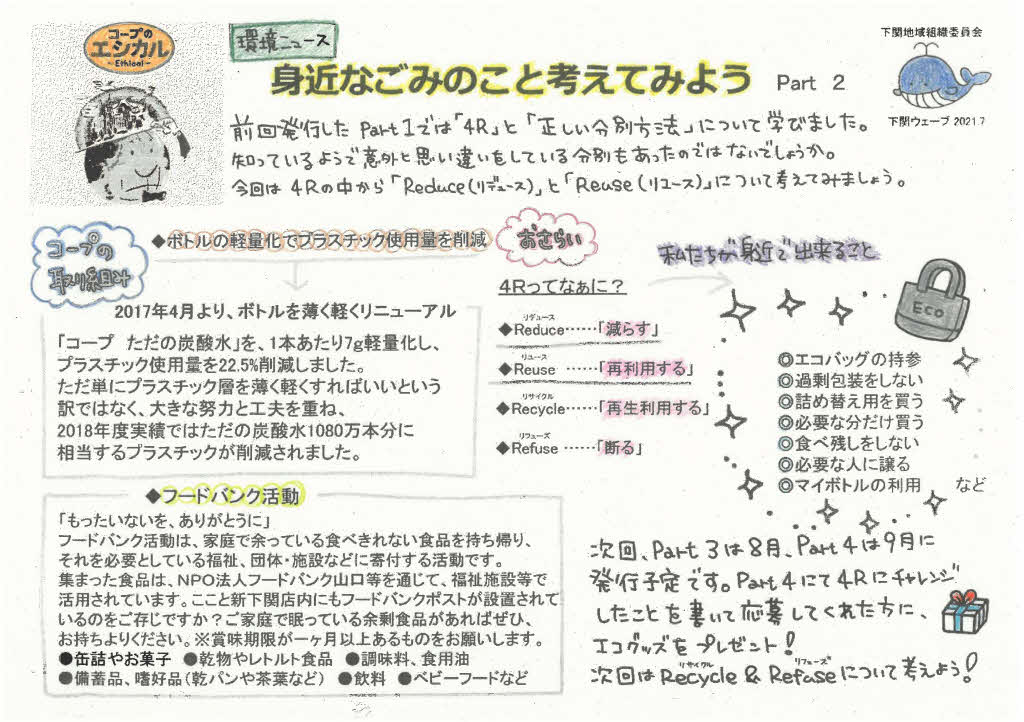 コープの
エシカル
-Ethical-
環境ニュース
身近なごみのこと考えてみよう Part 2
下関地域組織委員会
下関ウェーブ 2021.7
前回発行した Part1では「4R」と「正しい分別方法」について学びました。
知っているようで意外と思い違いをしている分別もあったのではないでしょうか。
今回は 4Rの中から「Reduce(リデュース)」と「Reuse(リユース)」について考えてみましょう。
コープの
取り組み
◆ボトルの軽量化でプラスチック使用量を削減
2017年4月より、ボトルを薄く軽くリニューアル
「コープ ただの炭酸水」を、1本あたり7g軽量化し、
プラスチック使用量を22.5%削減しました。
ただ単にプラスチック層を薄く軽くすればいいという
訳ではなく、大きな努力と工夫を重ね、
2018年度実績ではただの炭酸水1080万本分に
相当するプラスチックが削減されました。
おさらい
4Rってなぁに?
リデュース
◆Reduce……「減らす」
リユース
◆Reuse ……「再利用する」
リサイクル
◆Recycle……「再生利用する」
リフューズ
◆Refuse ……「断る」
私たちが身近で出来ること
Eco
◎エコバッグの持参
◎過剰包装をしない
◎詰め替え用を買う
◎必要な分だけ買う
◎食べ残しをしない
◎必要な人に譲る
◎マイボトルの利用 など
◆フードバンク活動
「もったいないを、ありがとうに」
フードバンク活動は、家庭で余っている食べきれない食品を持ち帰り、
それを必要としている福祉、団体・施設などに寄付する活動です。
集まった食品は、NPO法人フードバンク山口等を通じて、福祉施設等で
活用されています。ここと新下関店内にもフードバンクポストが設置されて
いるのをご存じですか?ご家庭で眠っている余剰食品があればぜひ、
お持ちよりください。※賞味期限が一ヶ月以上あるものをお願いします。
●缶詰やお菓子 ●乾物やレトルト食品 ●調味料、食用油
●備蓄品、嗜好品(乾パンや茶葉など) ●飲料 ●ベビーフードなど
次回、Part 3は8月、Part 4は9月に
発行予定です。Part 4にて4Rにチャレンジ
したことを書いて応募してくれた方に、
エコグッズをプレゼント!
リサイクル リフューズ
次回はRecycle & Refuseについて考えよう!